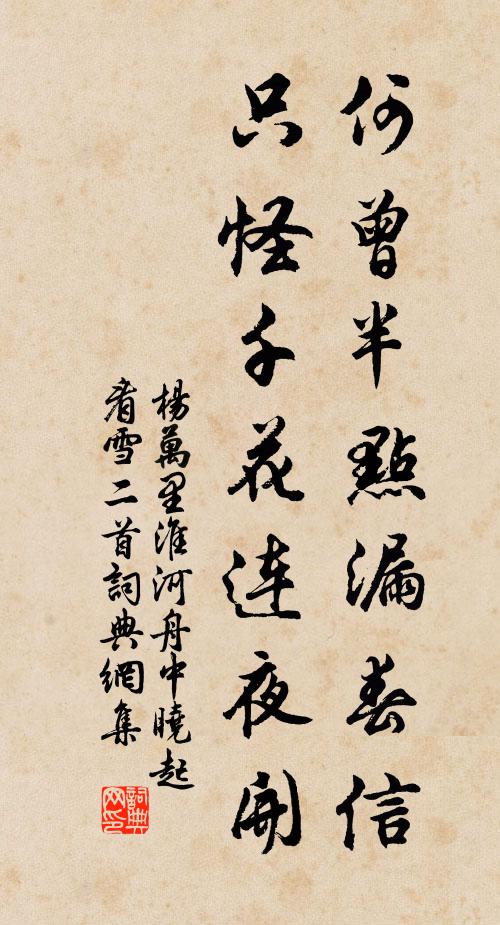 何曾半點漏春信
只怪千花連夜開
楊萬里淮河舟中曉起
看雪二首詞典網集
詞典網印